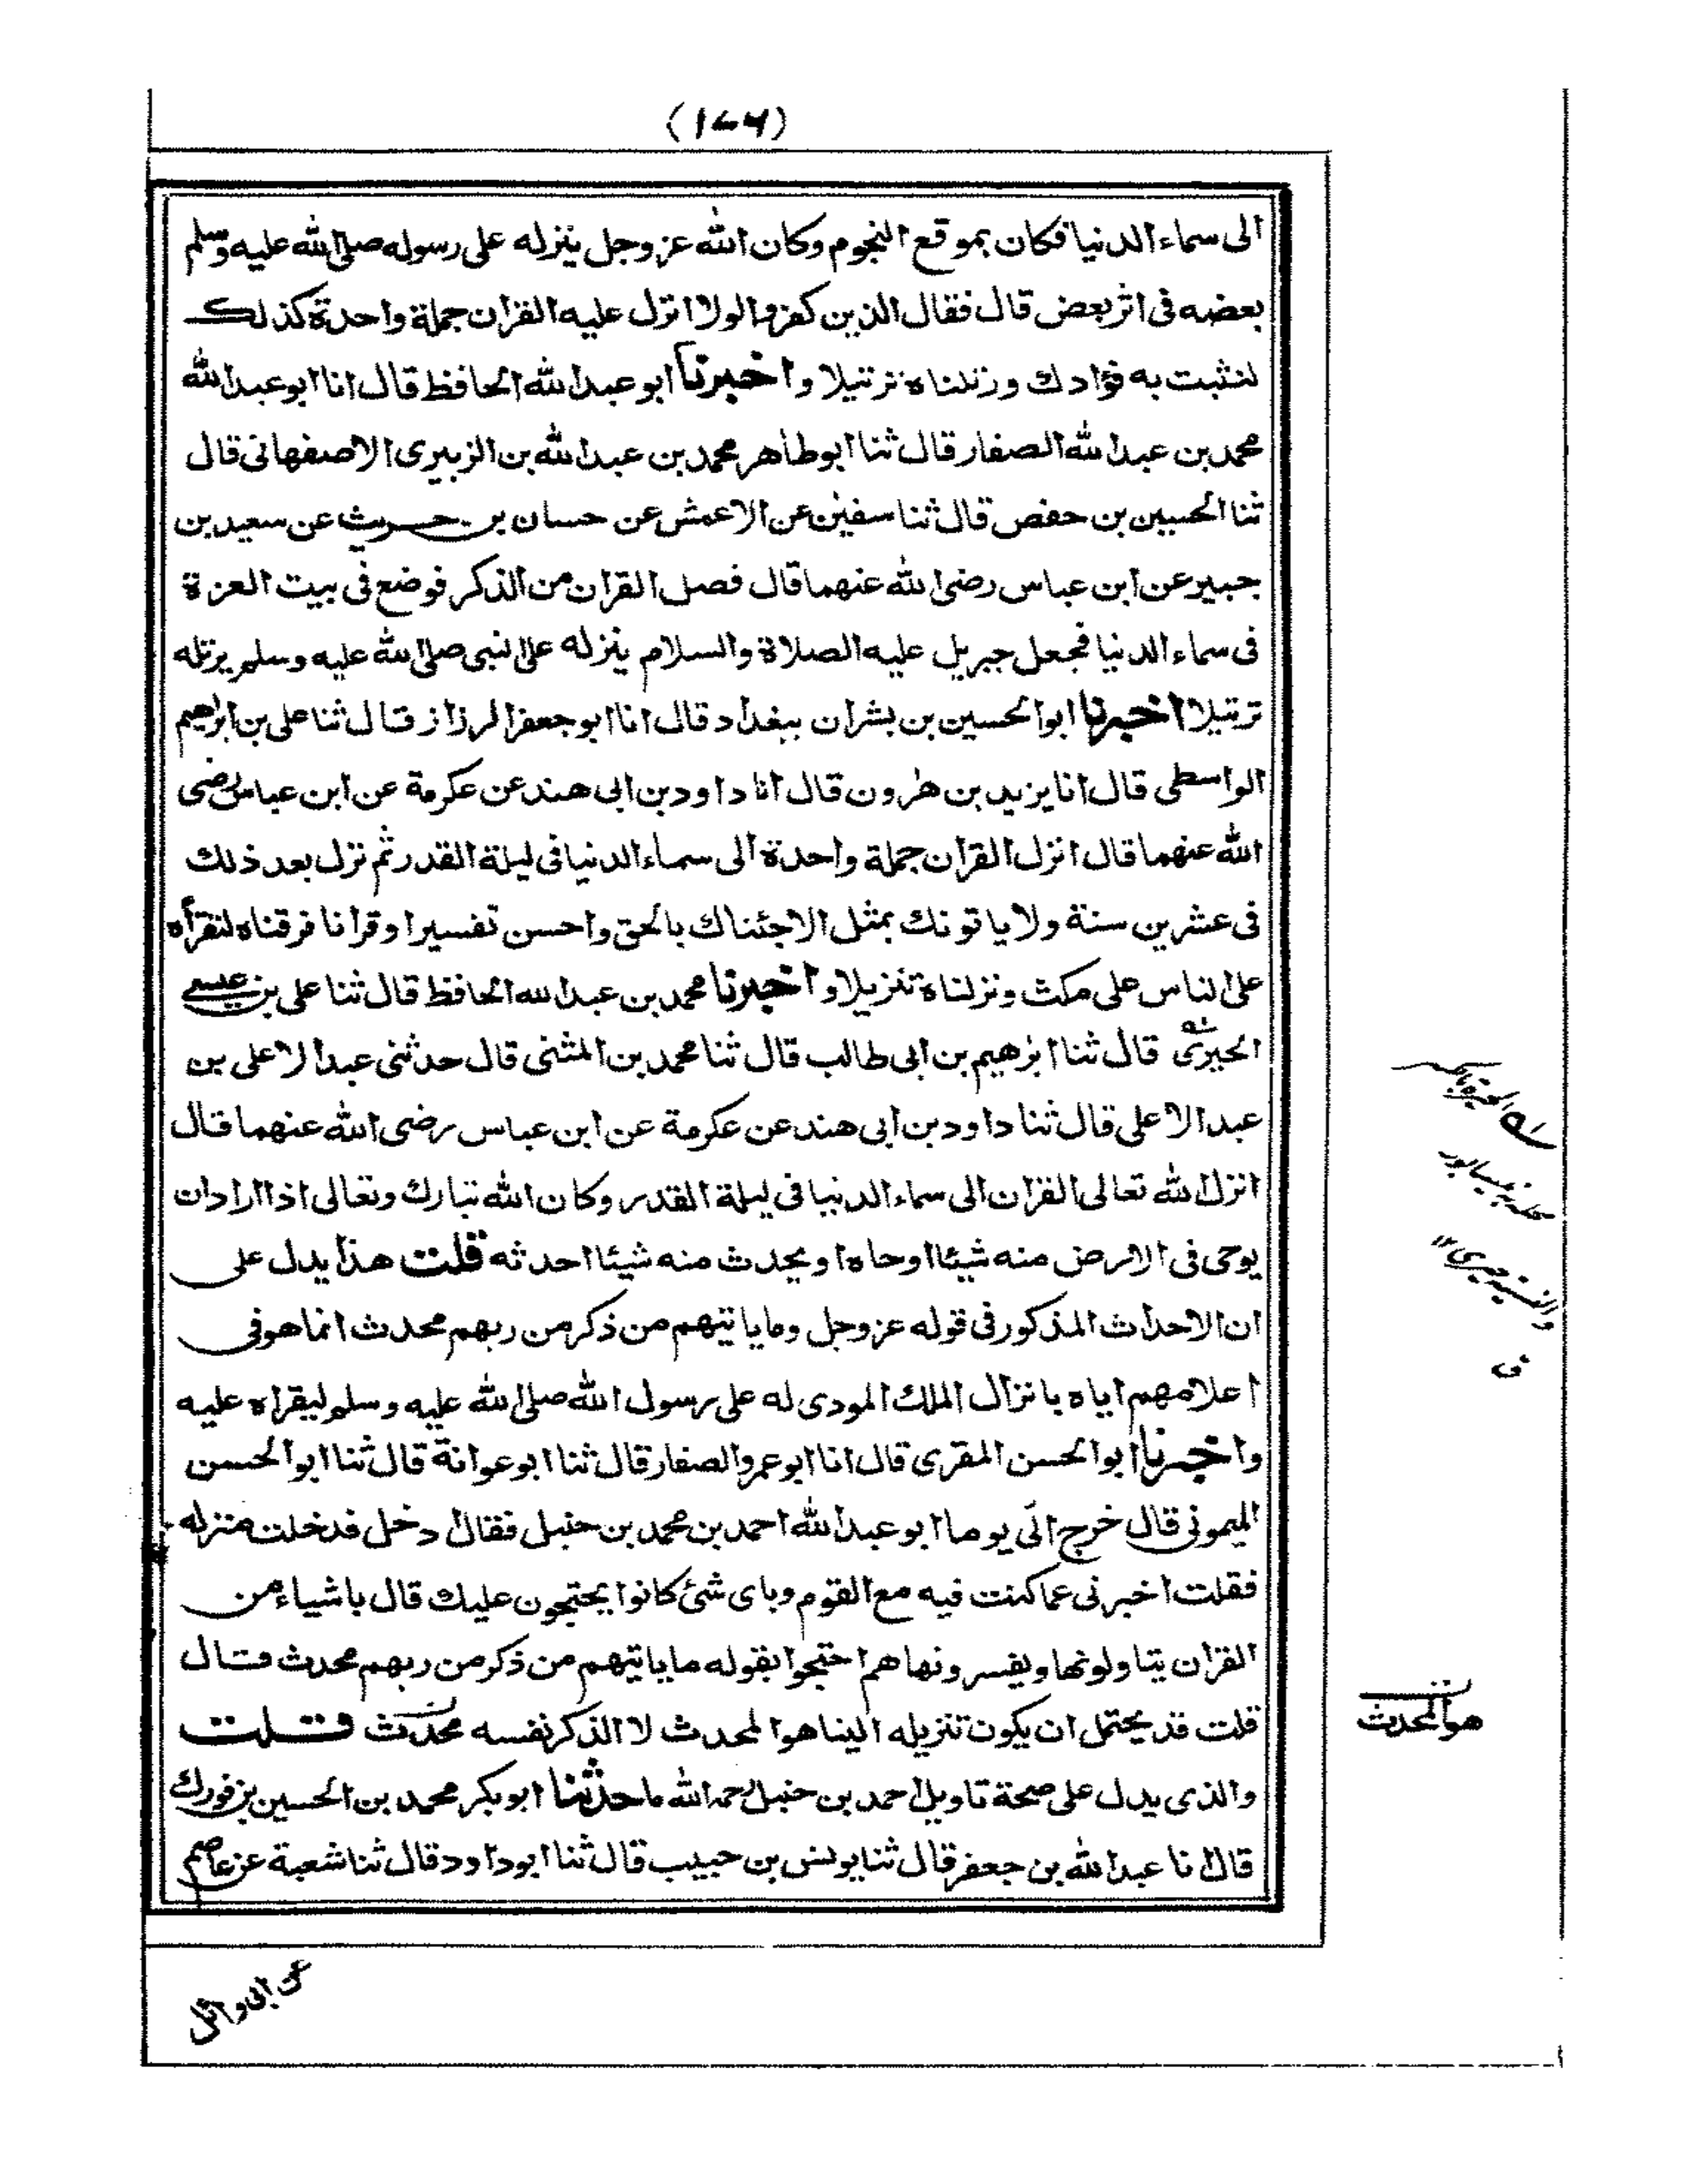 (۱۷۶)
الى سماء الدنيا فكان بموقع النجوم وكان الله عز وجل ينزله على رسوله صلى الله عليه وسلم
بعضه فى اثر بعض قال فقال الذين كفروا لولا انزل عليه القران جملة واحدة كذلك
لنثبت به فؤادك ورتلناه ترتيلا واخبرنا ابو عبد الله الحافظ قال انا ابو عبد الله
محمد بن عبد الله الصفار قال ثنا ابو طاهر محمد بن عبد الله بن الزبيرى الاصفهانى قال
ثنا الحسين بن حفص قال ثنا سفين عن الاعمش عن حسان بن حريث عن سعيد بن
جبير عن ابن عباس رضى الله عنهما قال فصل القران من الذكر فوضع فى بيت العزة
فى سماء الدنيا فجعل جبريل عليه الصلاة والسلام ينزله على النبى صلى الله عليه وسلم يرتله
ترتيلا اخبرنا ابو الحسين بن بشران ببغداد قال انا ابو جعفر الرزاز قال ثنا على بن ابرهيم
الواسطى قال انا يزيد بن هرون قال انا داود بن ابى هند عن عكرمة عن ابن عباس رضى
الله عنهما قال انزل القران جملة واحدة الى سماء الدنيا فى ليلة القدر ثم نزل بعد ذلك
فى عشرين سنة ولا ياتونك بمثل الا جئناك بالحق واحسن تفسيرا وقرانا فرقناه لتقرأه
على الناس على مكث ونزلناه تنزيلا واخبرنا محمد بن عبد الله الحافظ قال ثنا على بن عيسى
الحيرى قال ثنا ابرهيم بن ابى طالب قال ثنا محمد بن المثنى قال حدثنى عبد الاعلى بن
عبد الاعلى قال ثنا داود بن ابى هند عن عكرمة عن ابن عباس رضى الله عنهما قال
انزل الله تعالى القران الى سماء الدنيا فى ليلة القدر وكان الله تبارك وتعالى اذا اراد ان
يوحى فى الارض منه شيئا اوحاه او يحدث منه شيئا احدثه قلت هذا يدل على
ان الاحداث المذكور فى قوله عز وجل وما ياتيهم من ذكر من ربهم محدث انما هو فى
اعلامهم اياه بانزال الملك المودى له على رسول الله صلى الله عليه وسلم ليقراه عليه
واخبرنا ابو الحسن المقرى قال انا ابو عمرو الصفار قال ثنا ابو عوانة قال ثنا ابو الحسن
الميمونى قال خرج الى يوما ابو عبد الله احمد بن محمد بن حنبل فقال دخل فدخلت منزله
فقلت اخبرنى عما كنت فيه مع القوم وباى شئ كانوا يحتجون عليك قال باشياء من
القران يتاولونها ويفسرونها هم احتجوا بقوله ما ياتيهم من ذكر من ربهم محدث قال
قلت قد يحتمل ان يكون تنزيله الينا هو المحدث لا الذكر نفسه محدث قلت
والذى يدل على صحة تاويل احمد بن حنبل رحمه الله ما حدثنا ابو بكر محمد بن الحسين بن فورك
قال انا عبد الله بن جعفر قال ثنا يونس بن حبيب قال ثنا ابو داود قال ثنا شعبة عن عاصم
عن ابى وائل
محلة بنيسابور
والنسبة حيرى
هو المحدث